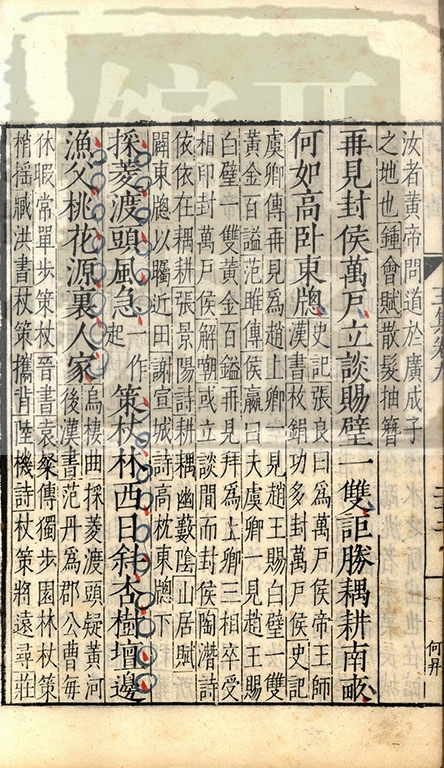 汝者黃帝問道於廣成子
之地也鍾會賦散髮抽簪
再見封侯萬戶立談賜璧一雙詎勝耦耕南畝
何如高卧東牎
史記張良曰為萬戶侯帝王師
漢書枚鋗功多封萬戶侯史記
虞卿傳再見為趙上卿一見趙王賜白璧一雙
黃金百謚范雎傳侯嬴曰夫虞卿一見趙王賜
白璧一雙黃金百鎰再見拜為上卿三相卒受
相印封萬戶侯解嘲或立談間而封侯陶潛詩
依依在耦耕張景陽詩耕耦幽藪陰山居賦
闢東牎以矚近田謝宣城詩高枕東牎下
採菱渡頭風急一作定策杖林西日斜杏樹壇邊
漁父桃花源裏人家
烏棲曲採菱渡頭疑黃河
後漢書范丹為郡公曹每
休暇常單步策杖晉書袁粲傳獨步園林杖策
楷搖臧洪書杖策攜背陸機詩杖策將遠尋莊
何丹